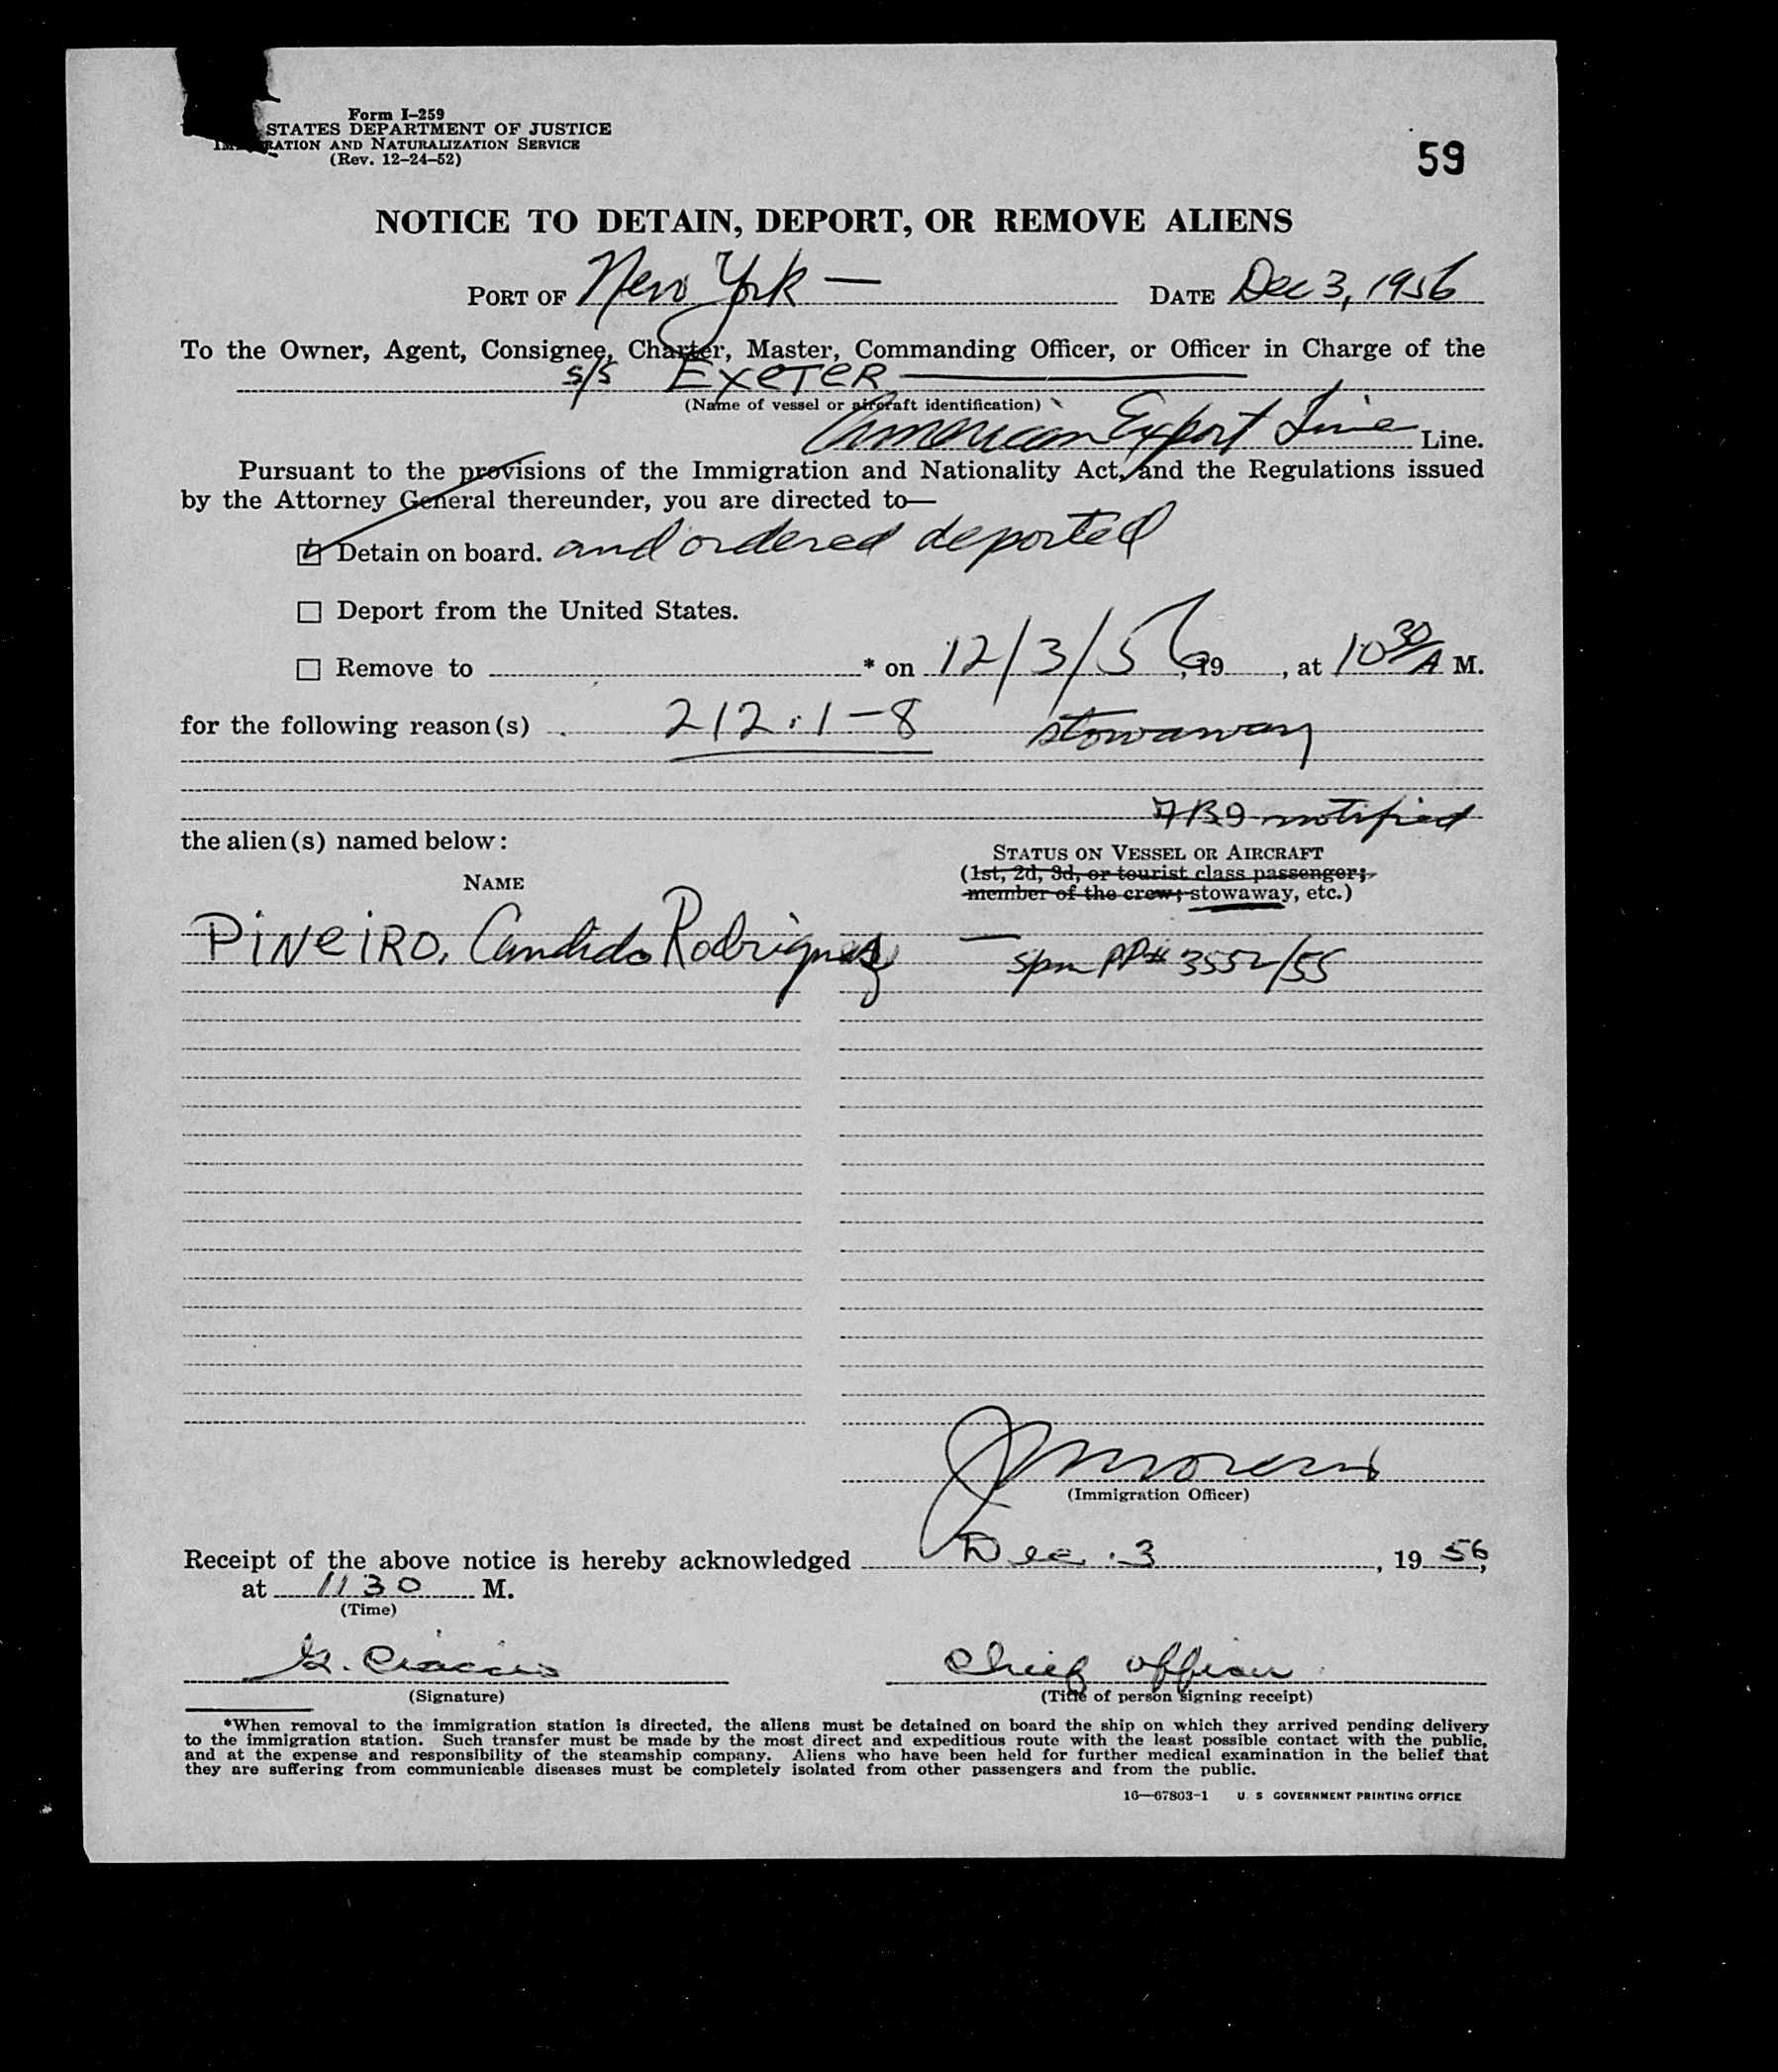 Form I-259
STATES DEPARTMENT OF JUSTICE
RATION AND NATURALIZATION SERVICE
(Rev. 12-24-52)
59
NOTICE TO DETAIN, DEPORT, OR REMOVE ALIENS
PORT OF New York — DATE Dec 3, 1956
To the Owner, Agent, Consignee, Charter, Master, Commanding Officer, or Officer in Charge of the
s/s EXETER
(Name of vessel or aircraft identification)
American Export Line Line.
Pursuant to the provisions of the Immigration and Nationality Act, and the Regulations issued
by the Attorney General thereunder, you are directed to—
Detain on board. and ordered deported
Deport from the United States.
Remove to * on 12/3/56, 19, at 10 30/A M.
for the following reason(s) 212.1-8 stowaway
notified
the alien(s) named below:
STATUS ON VESSEL OR AIRCRAFT
(1st, 2d, 3d, or tourist class passenger;
member of the crew; stowaway, etc.)
NAME
PINEIRO, Candido Rodriguez — Span PP# 3552/55
(Immigration Officer)
Receipt of the above notice is hereby acknowledged Dec. 3, 19 56,
at 1130 M.
(Time)
Chief Officer
(Signature) (Title of person signing receipt)
*When removal to the immigration station is directed, the aliens must be detained on board the ship on which they arrived pending delivery
to the immigration station. Such transfer must be made by the most direct and expeditious route with the least possible contact with the public,
and at the expense and responsibility of the steamship company. Aliens who have been held for further medical examination in the belief that
they are suffering from communicable diseases must be completely isolated from other passengers and from the public.
16—67803-1 U. S. GOVERNMENT PRINTING OFFICE